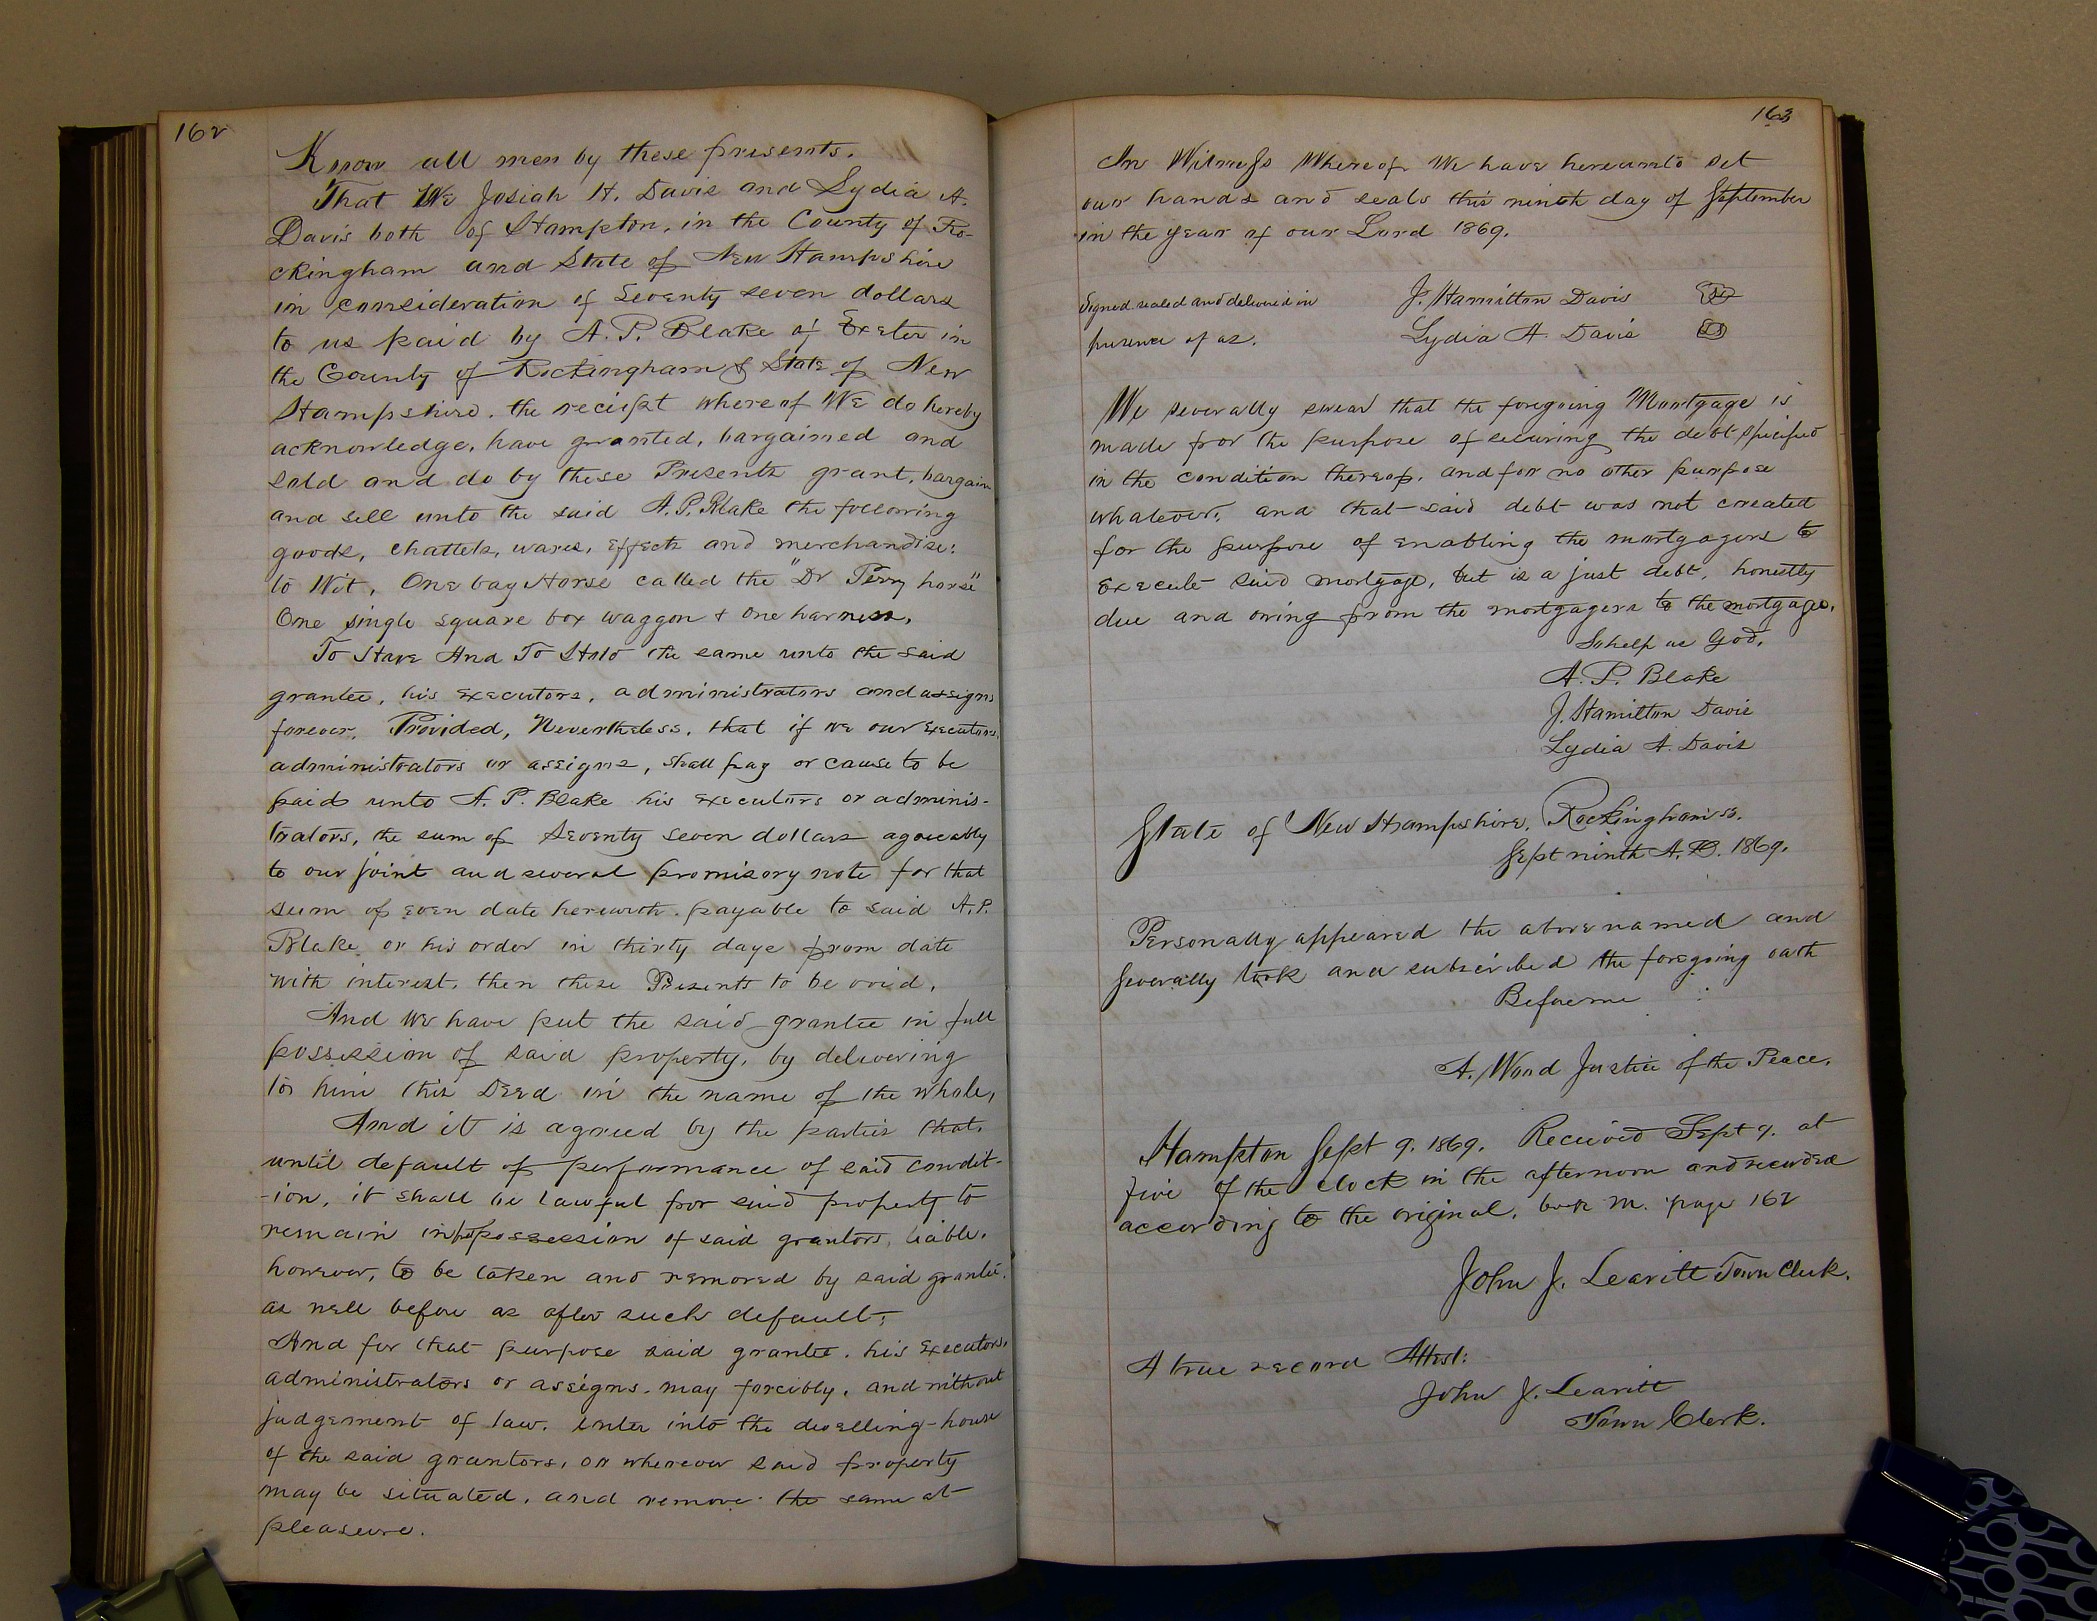 162
Know all men by these presents.
That We Josiah H. Davis and Lydia A.
Davis both of Hampton, in the County of Ro-
ckingham and State of New Hampshire
in consideration of Seventy seven dollars
to us paid by A. P. Blake of Exeter in
the County of Rockingham & State of New
Hampshire. the receipt whereof We do hereby
acknowledge, have granted, bargained and
sold and do by these Presents grant, bargain
and sell unto the said A. P. Blake the following
goods, chattels, wares, effects and merchandise:
to Wit, One bay Horse called the "Dr Perry horse"
One single square box waggon & one harness.
To Have And To Hold the same unto the said
grantee, his executors, administrators and assigns
forever. Provided, Nevertheless, that if we our executors,
administrators or assigns, shall pay or cause to be
paid unto A. P. Blake his executors or adminis-
trators, the sum of Seventy seven dollars agreeably
to our joint and several promisory note for that
sum of even date herewith. payable to said A. P.
Blake or his order in thirty days from date
with interest. then these Presents to be void.
And We have put the said grantee in full
possession of said property, by delivering
to him this Deed in the name of the whole,
And it is agreed by the parties that.
until default of performance of said condit-
-ion, it shall be lawful for said property to
remain in possession of said grantors, liable.
however, to be taken and removed by said grantee.
as well before as after such default;
And for that purpose said grantee. his executors,
administrators or assigns. may forcibly, and without
judgement of law. enter into the dwelling-house
of the said grantors, or wherever said property
may be situated, and remove the same at
pleasure.
163
In Witness Whereof We have hereunto set
our hands and seals this ninth day of September
in the year of our Lord 1869.
Signed sealed and delivered in J. Hamilton Davis
presence of us. Lydia A. Davis
We severally swear that the foregoing Mortgage is
made for the purpose of securing the debt specified
in the condition thereof, and for no other purpose
whatever, and that said debt was not created
for the purpose of enabling the mortgagors to
execute said mortgage, but is a just debt, honestly
due and owing from the mortgagers to the mortgagee.
So help us God.
A. P. Blake
J. Hamilton Davis
Lydia A. Davis
State of New Hampshire, Rockingham ss.
Sept ninth A. D. 1869.
Personally appeared the above named and
severally took and subscribed the foregoing oath
Before me
A. Wood Justice of the Peace.
Hampton Sept 9. 1869. Received Sept 9. at
five of the clock in the afternoon and recorded
according to the original, book M. page 162
John J. Leavitt Town Clerk.
A true record Attest:
John J. Leavitt
Town Clerk.